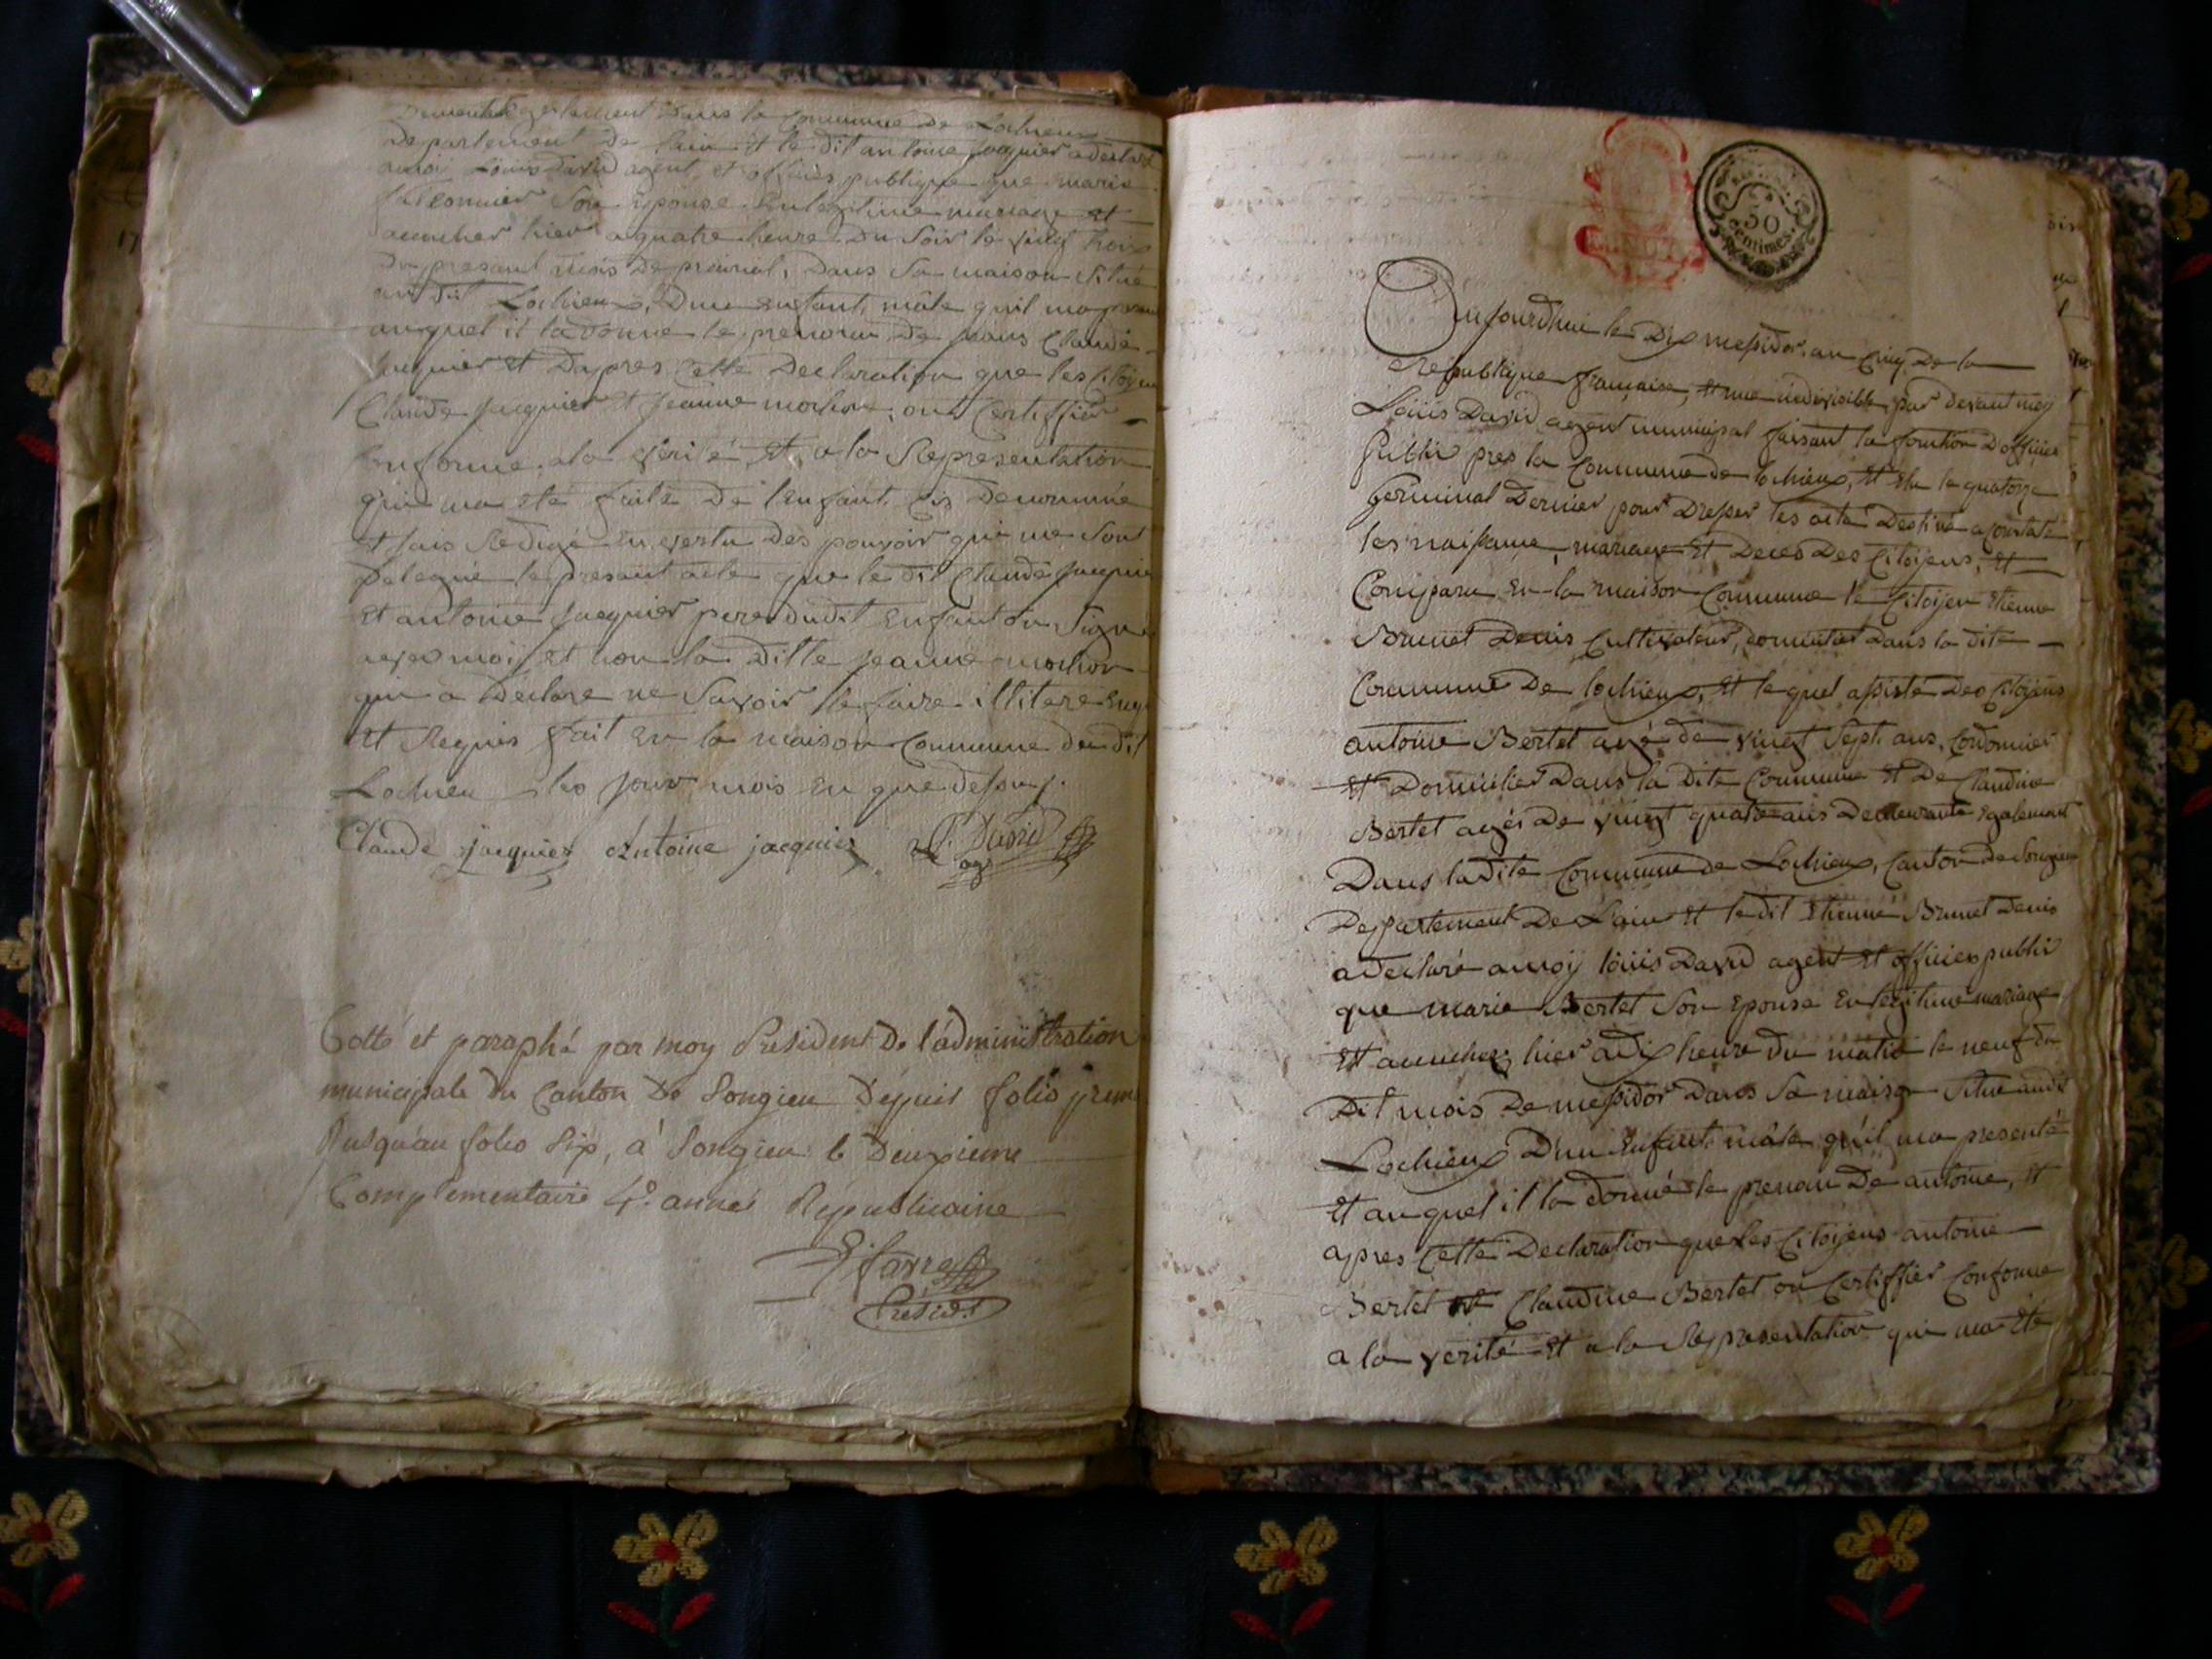 Departement de lain et le dit antoine jacquier a declaré
amoi Loüis David agent, et officier publique que marie
son epouse En legitime mariage Et
accucher hier a quatre heure du soir le vingt trois
du presant mois de preirial, Dans sa maison situé
au dit Lochieu, Dun enfant mâle quil ma
auquel il la donné le prenom de jeans Claude
jacquier et Dapres Cette Declaration que les citoyens
Claude jacquier Et jeanne mochon, ont Certiffier
Conforme ala verité Et a la Representation
qui ma eté faite De lenfant, cis Denommé
et jais Redigé En vertu Des pouvoir qui me sont
delegué le presant acte que le dit Claude jacquier
Et antoine jacquier pere dudit Enfant on signé
avec moi, et non la Ditte jeanne mochon
qui a Declare ne Savoir le faire illitere Enq
et Requis fait En la maison Commune du dit
Lochieu les jour mois En que dessus.
Claude jacquier Antoine jacquier L. David
agt
Cotté et paraphé par moy President De l'administration
municipale du Canton De Songieu Depuis folio prem
Jusqu'au folio Six, a Songieu le Deuxieme
Complementaire 4e. année Républicaine
Présidt.
50
centimes.
Aujourdhui le Dix messidor, an Cinq De la
Republique française, et une indivisible, par devant moy
Loüis David agent municipal faisant la fonction Dofficier
Public pres la Commune de lochieu, Et Elu le quatorze
Germinal Dernier pour Dresser les acte Destiné a Constaté
les naissance, mariage et Deces Des Citoijens, et
Comparu en la maison Commune le Citoijen etienne
Brunet Denis Cultivateur, domicilié dans la dite
Commune De lochieu, Et lequel assisté Des Citoijens
antoine Bertet agé de vingt Sept ans, Cordonnier
et Domicilier Dans la Dite Commune et De Claudine
Bertet agés De vingt quatre ans Demeurante Egalement
Dans ladite Commune de Lochieu, Canton de Songieu
Departement De Lain et le dit Etienne Brunet Denis
a Declaré amoij loüis David agent et officier public
que marie Bertet Son Epouse En legitime mariage
Et accucher hier adix heure du matin le neuf du
Dit mois De messidor Dans Sa maison Situe audit
Lochieu D'un Enfant mâle qu'il ma presenté
Et auquel il la donné le prenom De antoine, et
apres Cette Declaration que les Citoijens antoine
Bertet et Claudine Bertet on Certiffier Conforme
a la verité Et a la Representation qui ma Eté